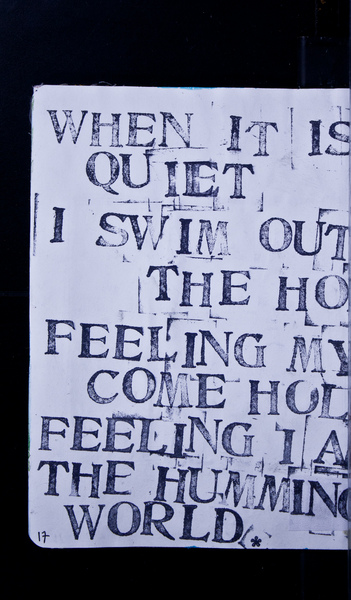 WHEN IT IS
QUIET
I SWIM OUT
THE HO
FEELING MY
COME HOL
FEELING I A
THE HUMMING
WORLD. *
17